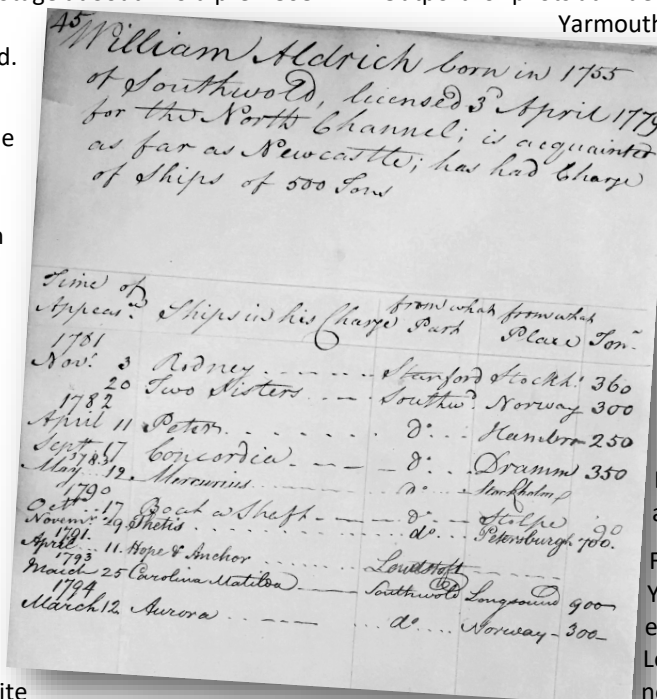 Yarmouth
45
William Aldrich born in 1755
of Southwold, licensed 3d April 1779
for the North Channel; is acquainted
as far as Newcastle; has had Charge
of Ships of 500 Tons
Time of Appear.ce Ships in his Charge from what Part from what Place Ton.
1781
Nov.r 3 Rodney Stanford Stockh. 360
20 Two Sisters Southw.d Norway 300
1782
April 11 Peter do. Hambro 250
Sept 17 Concordia do. Dramm 350
1783
May 12 Mercurius do. Stockholm
1790
Oct.r 17 do. Stolpe
Novemr. 19 Thetis do. Petersburgh 700.
1791
April 11. Hope & Anchor Lowestoft
1793
March 25 Carolina Matilda Southwold Longsound 900
1794
March 12 Aurora do. Norway 300